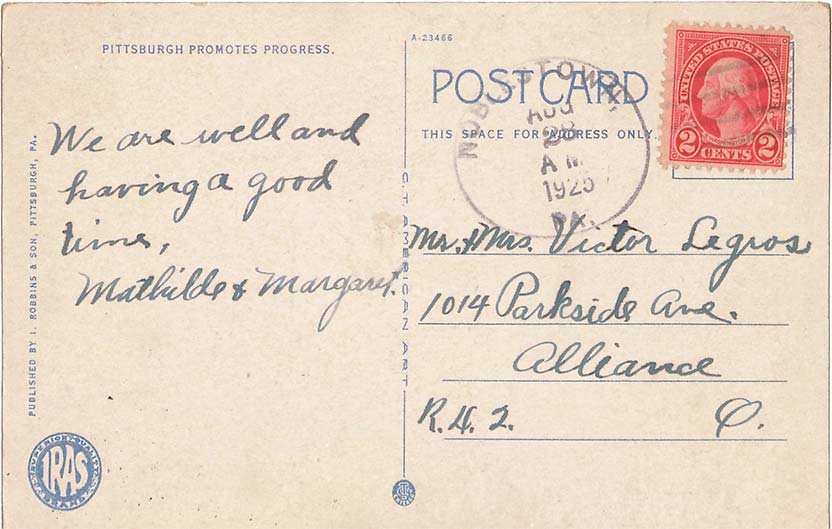 PITTSBURGH PROMOTES PROGRESS.
A-23466
POST CARD
THIS SPACE FOR ADDRESS ONLY.
NOBLESTOWN,
AUG
28
A M
1925
PA.
UNITED STATES POSTAGE
2 CENTS 2
We are well and
having a good
time,
Mathilde & Margaret.
Mr. & Mrs. Victor Legros
1014 Parkside Ave.
Alliance
R.D. 2. O.
PUBLISHED BY I. ROBBINS & SON, PITTSBURGH, PA.
C.T. AMERICAN ART
SUPERIOR QUALITY
IRAS
BRAND